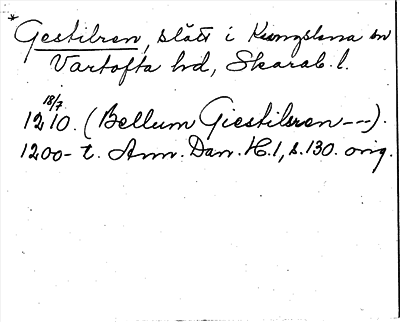 * Gestilren, slätt i Kungslena sn
Vartofta hd, Skarab. l.
18/7
1210. (Bellum Giestilsren ---).
1200-t. Ann. Dan. H. 1, s. 130. orig.